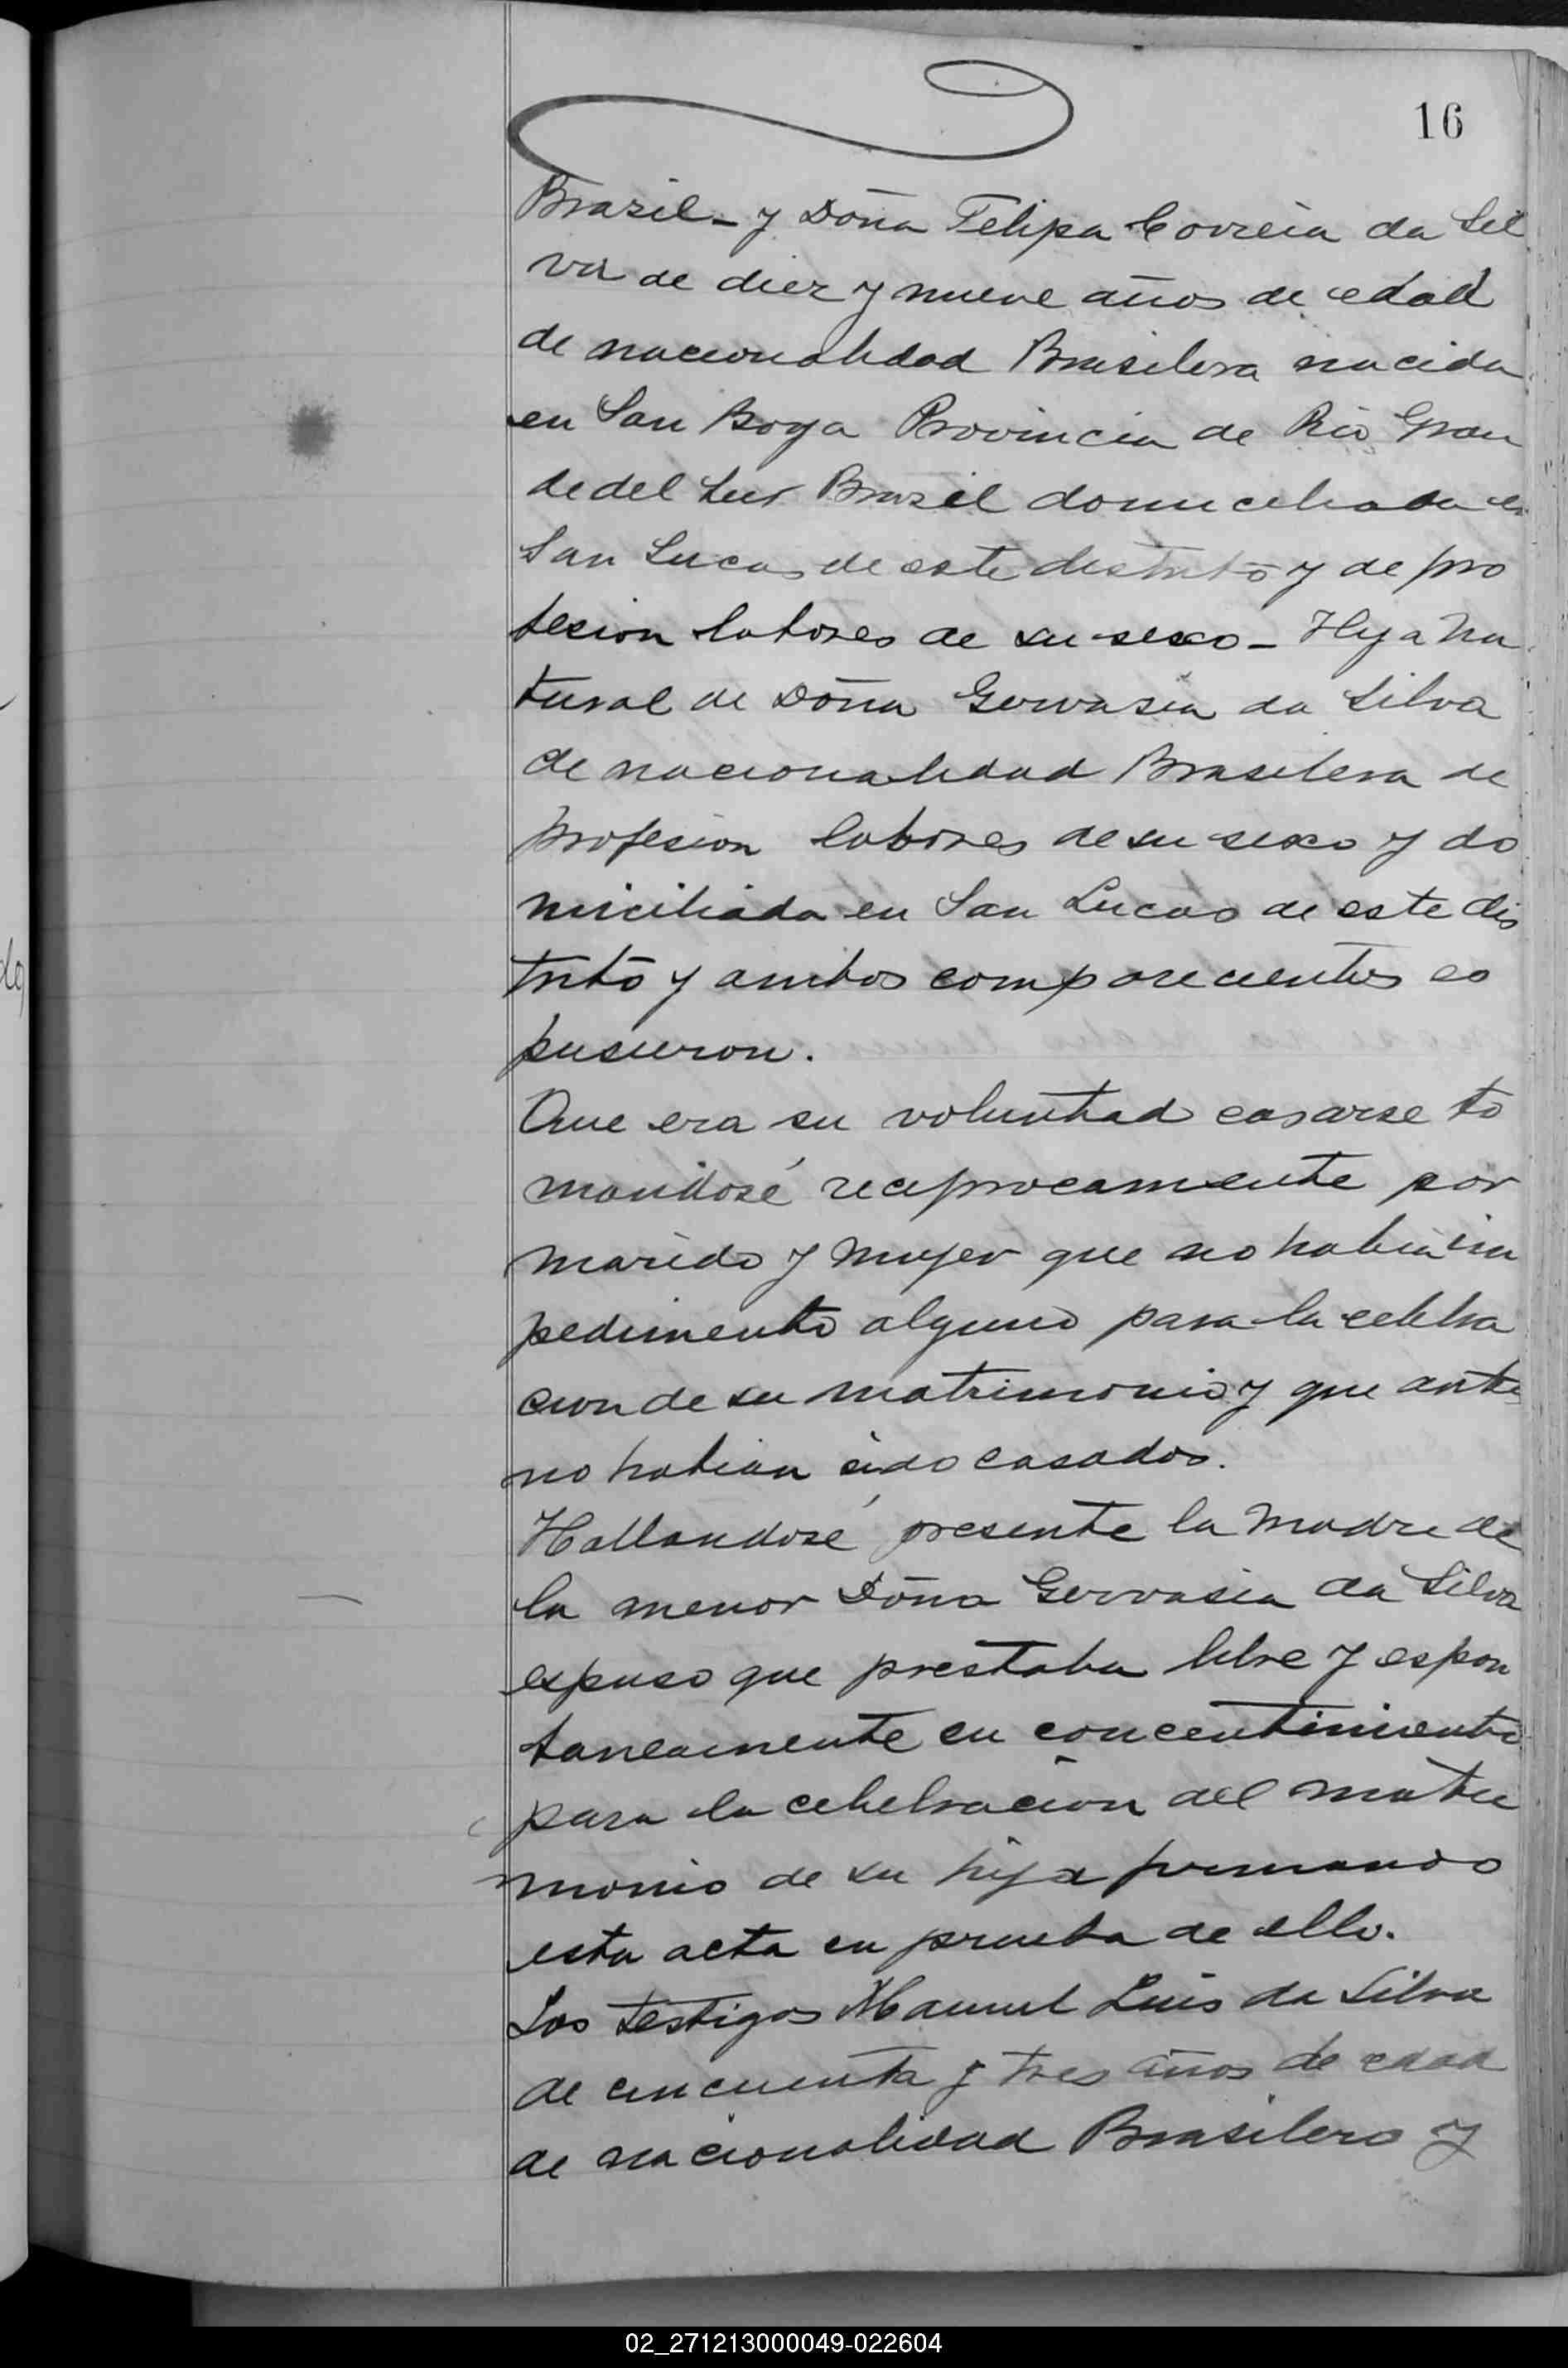 16
Brazil - y Doña Felipa Correia da Sil
va de diez y nueve años de edad
de nacionalidad Brasilera nacida
en San Borja Provincia de Rio Gran
de del Sur Brazil domiciliada en
San Lucas de este distrito y de pro
fesion labores de su sexo - Hija na
tural de Doña Gervasia da Silva
de nacionalidad Brasilera de
profesion labores de su sexo y do
miciliada en San Lucas de este dis
trito y ambos comparecientes es
pusieron.
Que era su voluntad casarse to
mandosé reciprocamente por
marido y mujer que no habia im
pedimento alguno para la celebra
cion de su matrimonio y que antes
no habian sido casados.
Hallandosé presente la madre de
la menor Doña Gervasia da Silva
espuso que prestaba libre y espon
taneamente su concentimiento
para la celebracion del matri
monio de su hija firmando
esta acta en prueba de ello.
Los testigos Manuel Luis da Silva
de cincuenta y tres años de edad
de nacionalidad Brasilero y
02_271213000049-022604